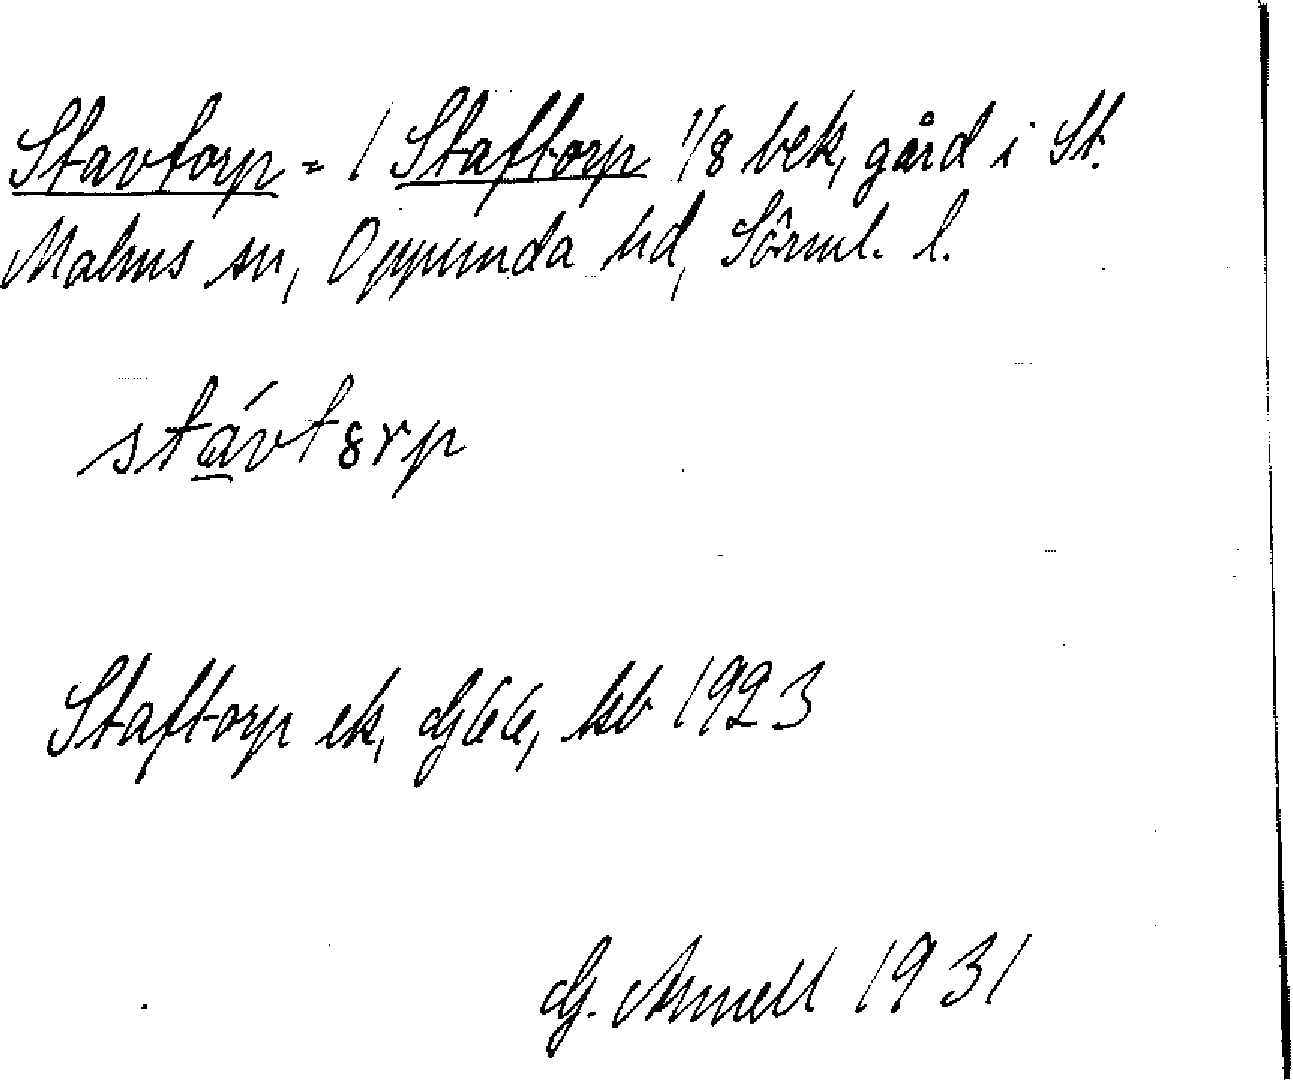 Stavtorp = / Staftorp 1/8 bek, gård i St.
Malms sn, Oppunda hd, Sörml. l.
stávtorp
Staftorp ek, GEG, kb 1923
G. Arnell 1931